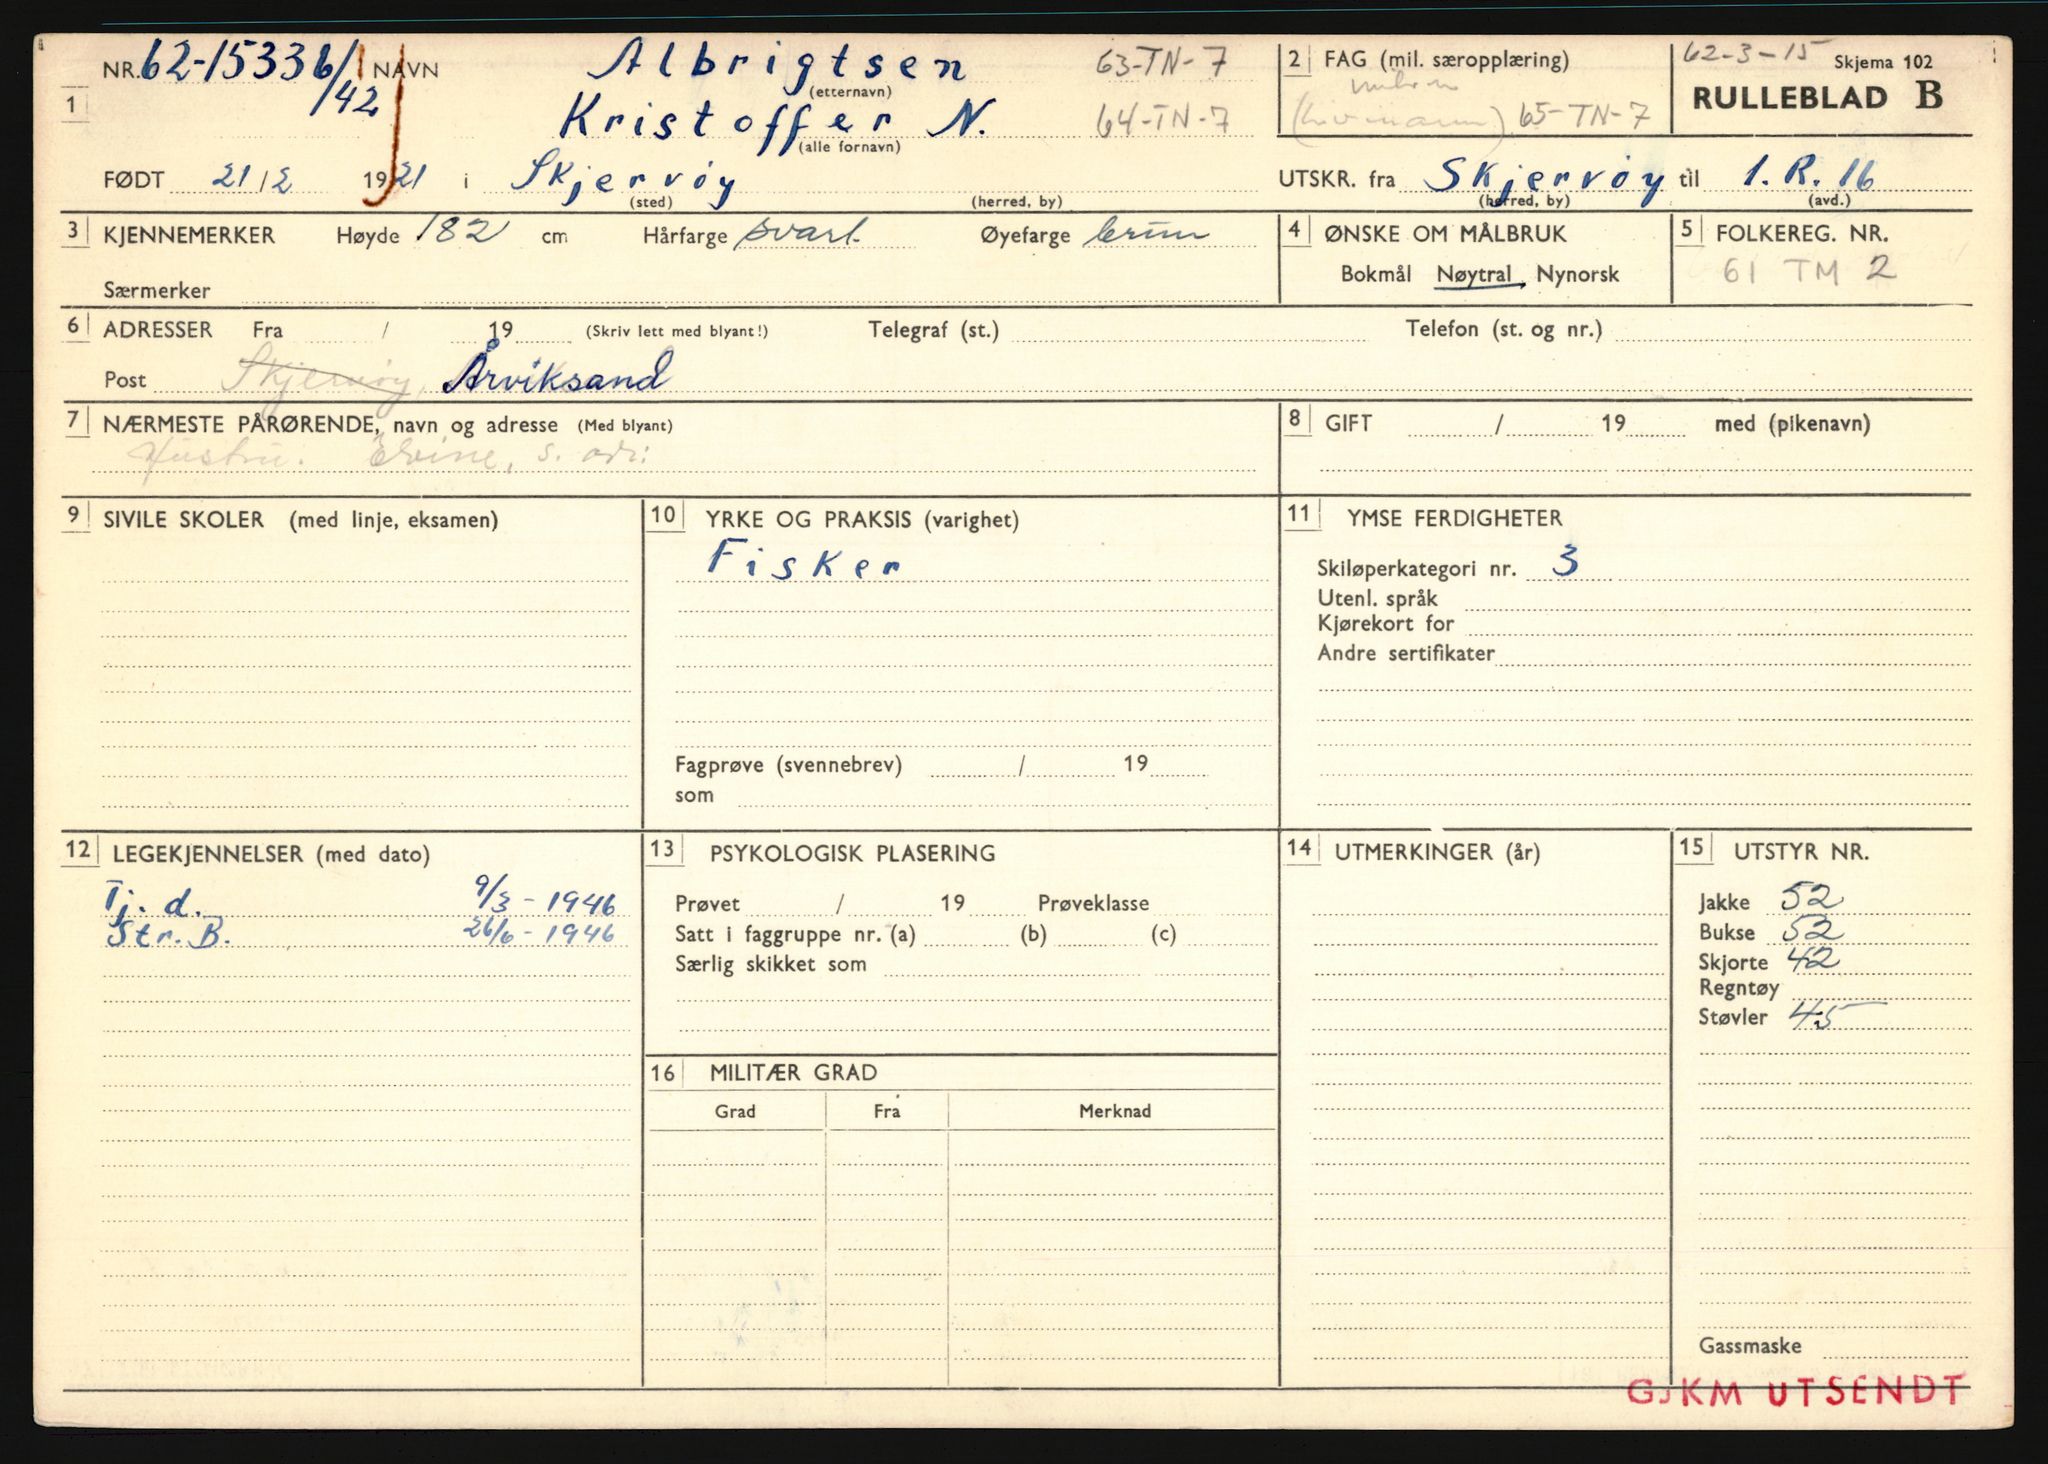 62-3-15 Skjema 102
NR. 62-15336/1 NAVN Albrigtsen 63-TN-7
/42
(etternavn)
2 FAG (mil. særopplæring)
RULLEBLAD B
1 Kristoffer N. 64-TN-7
(alle fornavn)
65-TN-7
FØDT 21/2 1921 i Skjervøy
(sted) (herred, by)
UTSKR. fra Skjervøy til 1. R. 16
(herred, by) (avd.)
3 KJENNEMERKER Høyde 182 cm Hårfarge svart Øyefarge brun
Særmerker
4 ØNSKE OM MÅLBRUK
Bokmål Nøytral Nynorsk
5 FOLKEREG. NR.
61 TM 2
6 ADRESSER Fra / 19 (Skriv lett med blyant!) Telegraf (st.) Telefon (st. og nr.)
Post Skjervøy, Årviksand
7 NÆRMESTE PÅRØRENDE, navn og adresse (Med blyant)
Hustru: s. adr:
8 GIFT / 19 med (pikenavn)
9 SIVILE SKOLER (med linje, eksamen)
10 YRKE OG PRAKSIS (varighet)
Fisker
Fagprøve (svennebrev) / 19
som
11 YMSE FERDIGHETER
Skiløperkategori nr. 3
Utenl. språk
Kjørekort for
Andre sertifikater
12 LEGEKJENNELSER (med dato)
Tj. d. 9/3 - 1946
Str. B. 26/6 - 1946
13 PSYKOLOGISK PLASERING
Prøvet / 19 Prøveklasse
Satt i faggruppe nr. (a) (b) (c)
Særlig skikket som
16 MILITÆR GRAD
Grad Fra Merknad
14 UTMERKINGER (år)
15 UTSTYR NR.
Jakke 52
Bukse 52
Skjorte 42
Regntøy
Støvler 45
Gassmaske
GJKM UTSENDT